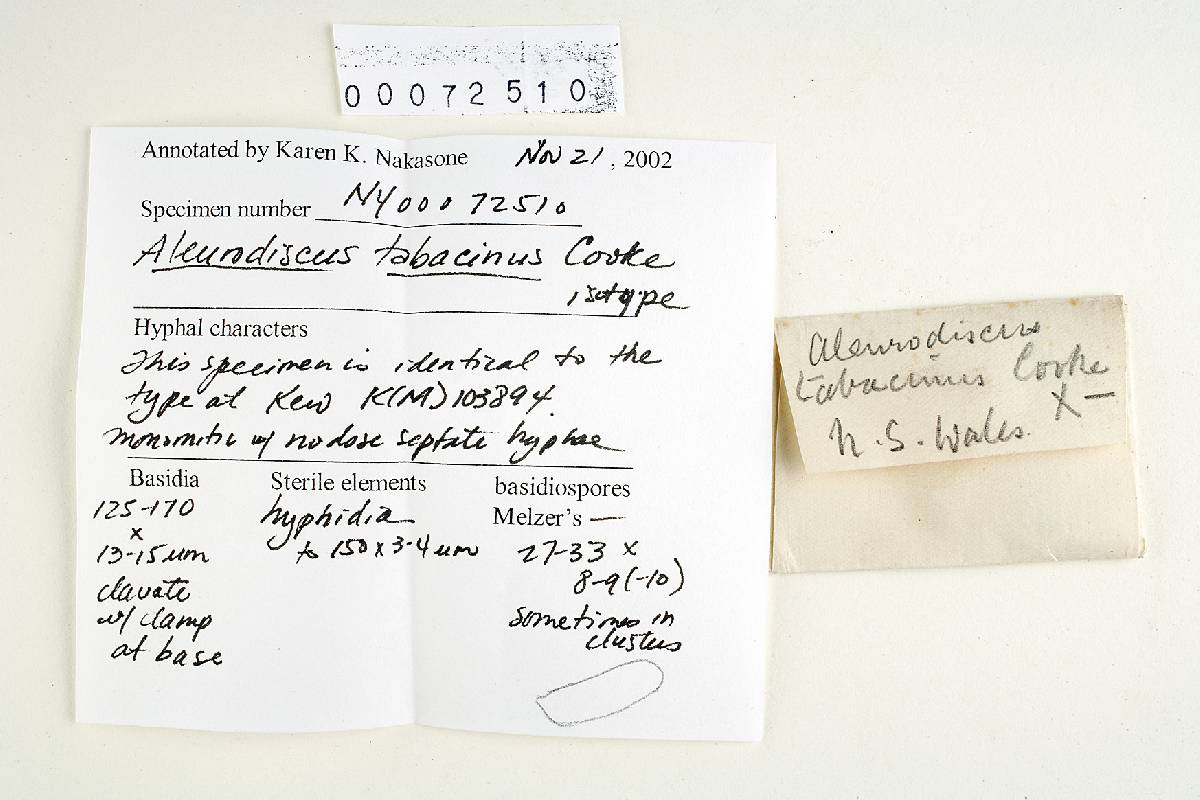 00072510
Annotated by Karen K. Nakasone Nov 21, 2002
Specimen number NY00072510
Aleurodiscus tabacinus Cooke
isotype
Hyphal characters
This specimen is identical to the
type at Kew K(M)103894.
monomitic w/ nodose septate hyphae
Basidia
125-170
x
13-15 um
clavate
w/ clamp
at base
Sterile elements
hyphidia
to 150 x 3-4 um
basidiospores
Melzer's —
27-33 x
8-9(-10)
sometimes in
clusters
Aleurodiscus
tabacinus Cooke
X —
N. S. Wales.